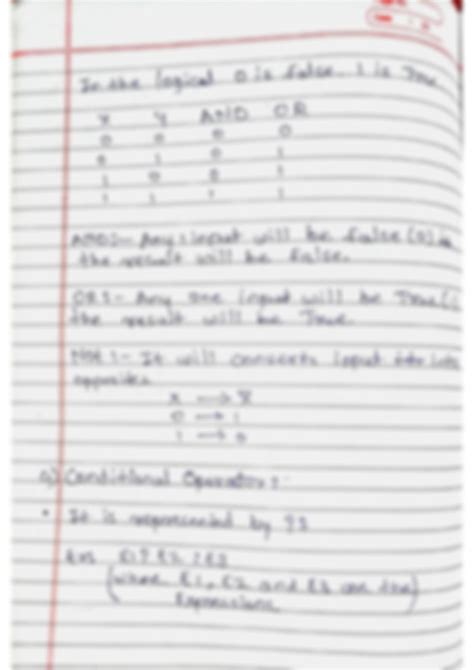 In the logical 0 is false. 1 is True
X Y AND OR
0 0 0 0
0 1 0 1
1 0 0 1
1 1 1 1
AND:- Any input will be false (0)
the result will be false.
OR:- Any one input will be True (
the result will be True.
Not:- It will converts input into
opposites
X → X̅
0 → 1
1 → 0
Conditional Operator:
• It is represented by ?:
E1? E2 : E3
(where E1, E2 and E3 are the)
Expressions